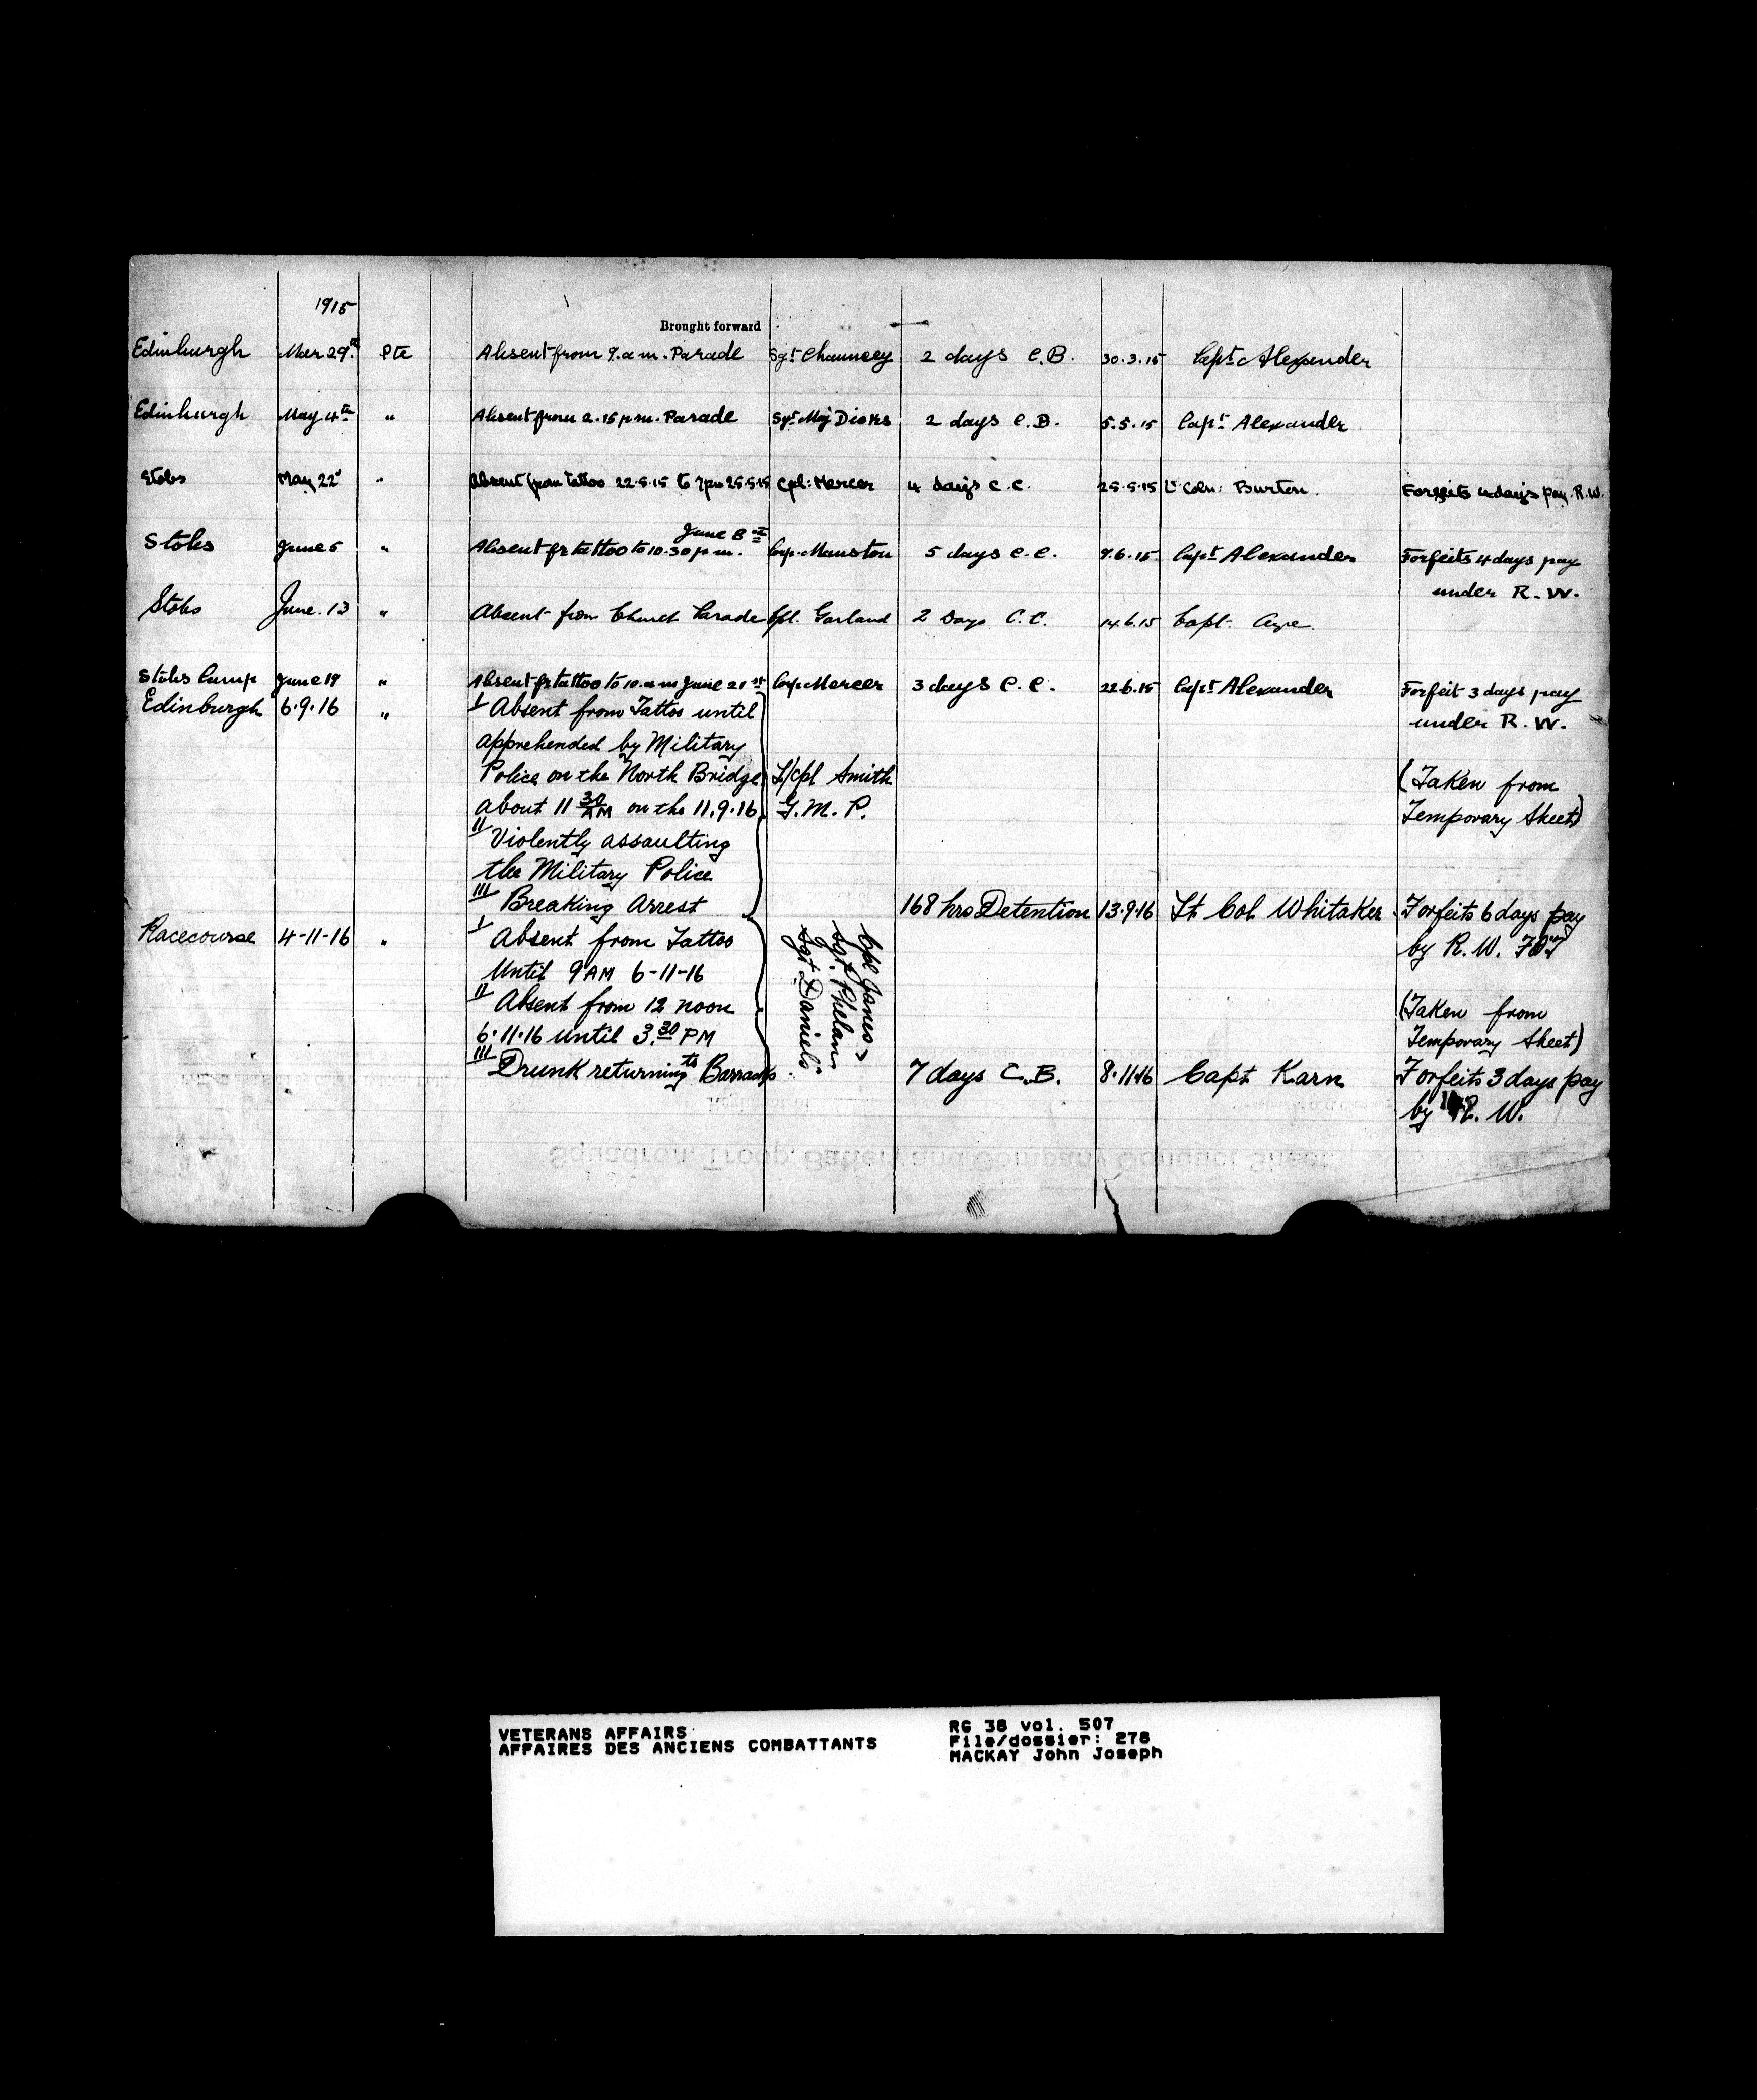 1915
Brought forward
Edinburgh Mar 29th Pte Absent from 9. a.m. Parade Sgt Chauncey 2 days C.B. 30.3.15 Capt Alexander
Edinburgh May 4th " Absent from 2.15 p.m. Parade Sgt Maj Dicks 2 days C.B. 5.5.15 Capt Alexander
Stobs May 22 " Absent from Tattoo 22.5.15 to 7pm 25.5.15 Cpl: Mercer 4 days C.C. 25.5.15 Lt Coln: Burton. Forfeits 4 days pay. R.W.
June 8th
Stobs June 5 " Absent fr tattoo to 10.30 p.m. Corp. Manston 5 days C.C. 9.6.15 Capt Alexander Forfeits 4 days pay
under R. W.
Stobs June. 13 " Absent from Church Parade Cpl. Garland 2 Days C.C. 14.6.15 Capt. Ayre.
Stobs Camp June 19 " Absent fr tattoo to 10. a m June 21st Corp Mercer 3 days C.C. 22.6.15 Capt Alexander Forfeit 3 days pay
under R. W.
Edinburgh 6.9.16 " I Absent from Tattoo until
apprehended by Military
Police on the North Bridge L/cpl Smith (Taken from
about 11 30 AM on the 11.9.16 G.M.P. Temporary Sheet)
II Violently assaulting
the Military Police
III Breaking Arrest 168 hrs Detention 13.9.16 Lt Col Whitaker. Forfeits 6 days pay
by R. W.
Racecourse 4-11-16 " I Absent from Tattoo
Until 9 AM 6-11-16
II Absent from 12 noon (Taken from
6.11.16 until 3.30 PM Temporary Sheet)
III Drunk returning to Barracks 7 days C.B. 8.11.16 Capt Karn Forfeits 3 days pay
by R. W.
Cpl Janes
Sgt. Phelan
Sgt Daniels
Squadron, Troop, Battery and Company Conduct Sheet
VETERANS AFFAIRS
AFFAIRES DES ANCIENS COMBATTANTS
RG 38 Vol. 507
File/dossier: 278
MACKAY John Joseph